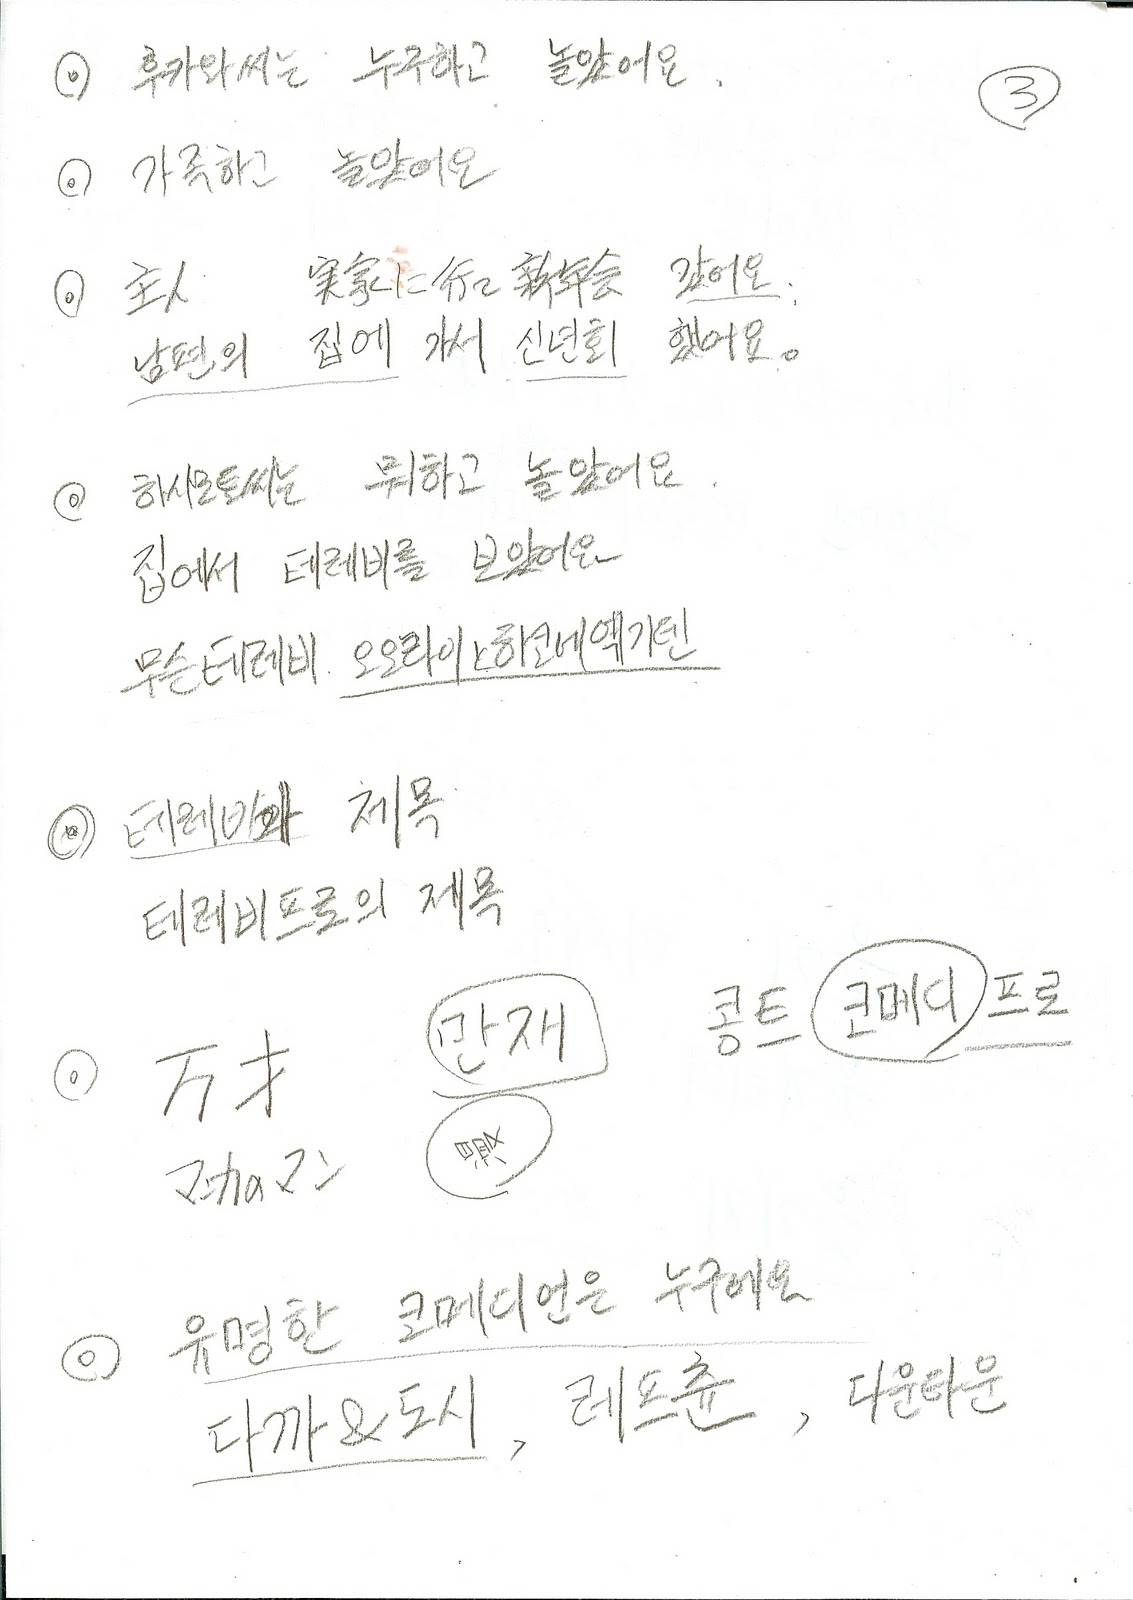 ③
후카와씨는 누구하고 놀았어요.
가족하고 놀았어요
主人 実家に行って 新年会 갔어요.
남편의 집에 가서 신년회 했어요。
하시모토씨는 뭐하고 놀았어요.
집에서 테레비를 보았어요
무슨테레비. 오오라이 하코네엑기텐
테레비 제목
테레비프로의 제목
만재 콩트 코메디 프로
万才
유명한 코메디언은 누구에요
다까&도시, 레프츈, 다운타운